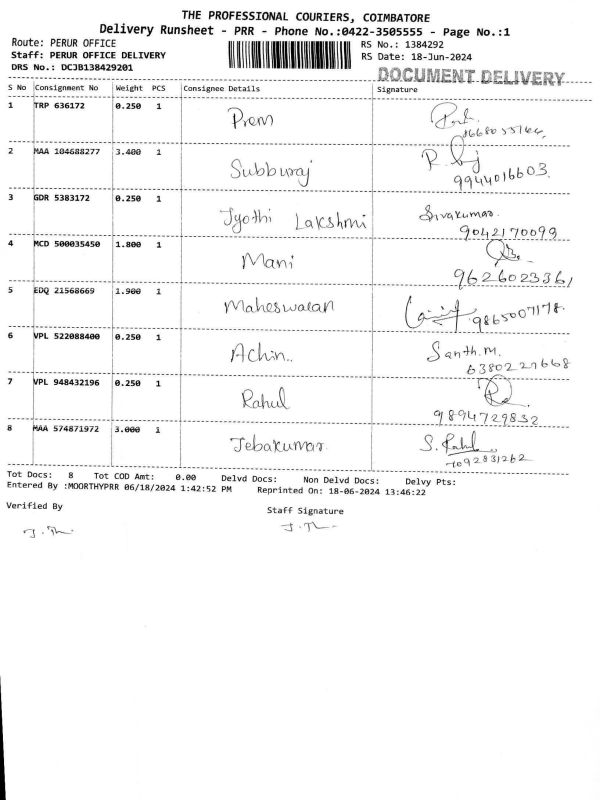 THE PROFESSIONAL COURIERS, COIMBATORE
Delivery Runsheet - PRR - Phone No.:0422-3505555 - Page No.:1
Route: PERUR OFFICE RS No.: 1384292
Staff: PERUR OFFICE DELIVERY RS Date: 18-Jun-2024
DRS No.: DCJB138429201
DOCUMENT DELIVERY
S No Consignment No Weight PCS Consignee Details Signature
1 TRP 636172 0.250 1 Prem
2 MAA 104688277 3.400 1 Subburaj
9944016603.
3 GDR 5383172 0.250 1 Jyothi Lakshmi Sivakumar.
9042170099
4 MCD 500035450 1.800 1 Mani
9626023361
5 EDQ 21568669 1.900 1 Maheswaran
9865007178.
6 VPL 522088400 0.250 1 Achin.. Santh.M.
6380227668
7 VPL 948432196 0.250 1 Rahul
9894729832
8 MAA 574871972 3.000 1 Jebakumar. S. Rahul
7092831262
Tot Docs: 8 Tot COD Amt: 0.00 Delvd Docs: Non Delvd Docs: Delvy Pts:
Entered By :MOORTHYPRR 06/18/2024 1:42:52 PM Reprinted On: 18-06-2024 13:46:22
Verified By Staff Signature